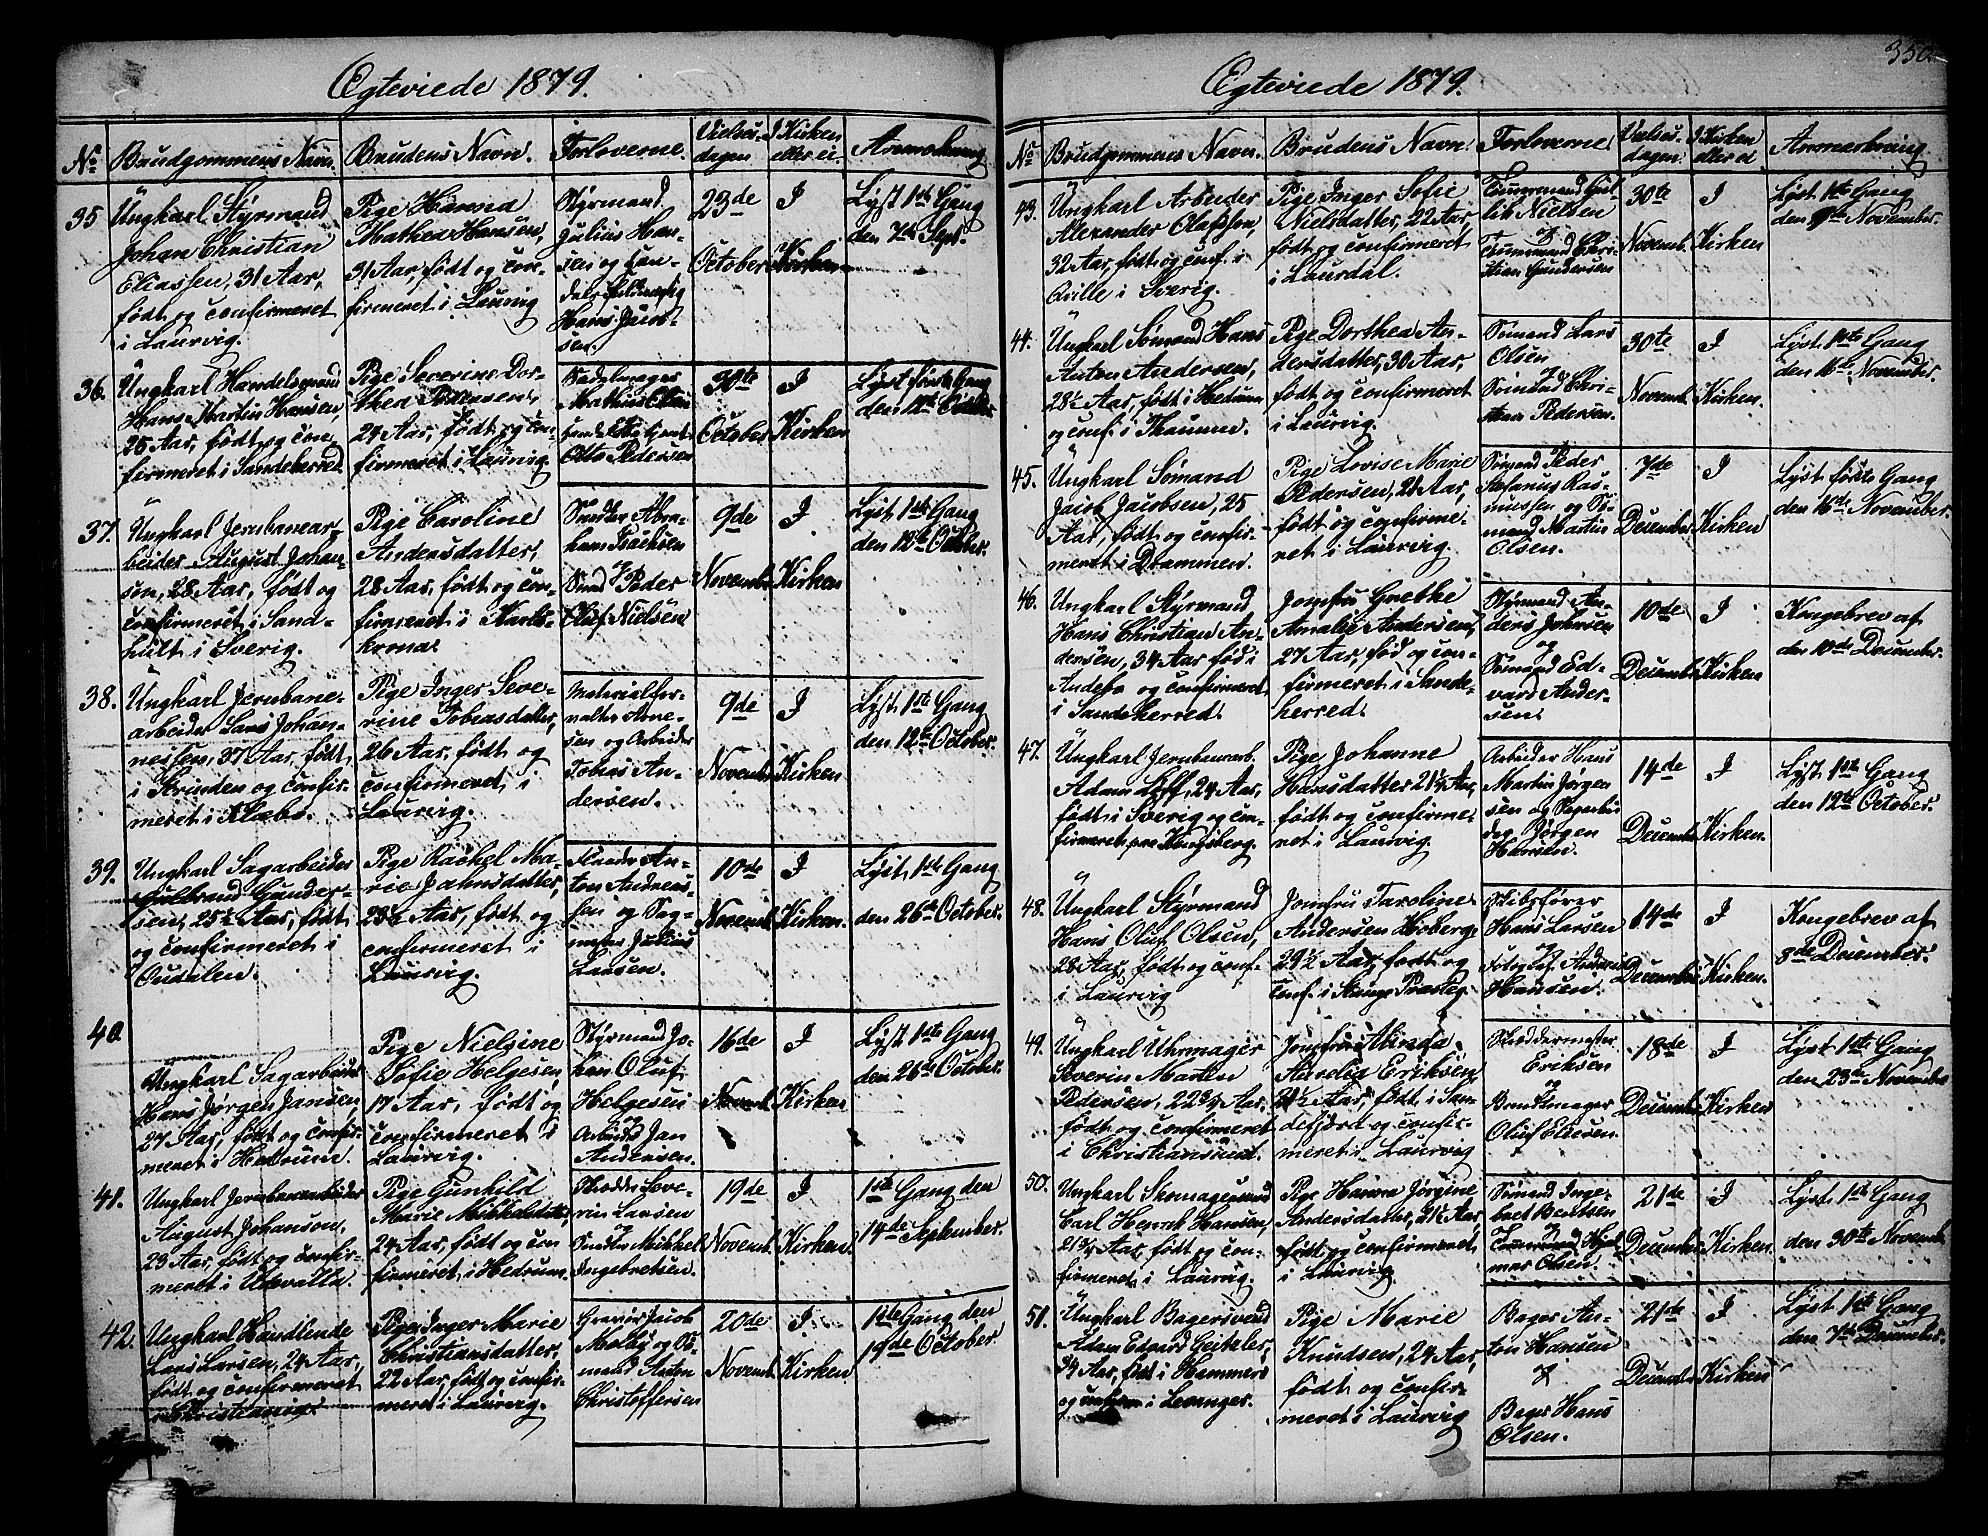 350
Ægteviede 1879.
No.
Brudgommens Navn.
Brudens Navn.
Forloverne.
Vielses-
dagen
I Kirken
eller ei
Anmærkning
35
Ungkarl Styrmand
Johan Christian
Eliassen, 31 Aar,
født og confirmeret
i Laurvig.
Pige Hanna
Mathea Hansen,
31 Aar, født og con-
firmeret i Laurvig
Styrmand
Julius Han-
sen og Han-
delsfuldmægtig
Hans Jacob-
sen.
23de
October
I
Kirken
Lyst 1ste Gang
den 7de Sept.
36.
Ungkarl Handelsmand
Hans Martin Hansen,
25 Aar, født og con-
firmeret i Sandeherred.
Pige Severine Dor-
thea Pedersen,
24 Aar, født og con-
firmeret i Laurvig.
Sadelmager
Mathias
Otto Pedersen
30te
October
I
Kirken
Lyst første Gang
den 12te October
37.
Ungkarl Jernbanear-
beider August Johan-
son, 28 Aar, født og
confirmeret i Sand-
hult i Sverig.
Pige Caroline
Andersdatter,
28 Aar, født og con-
firmeret i Karls-
krona.
Smeden Abra-
ham Isachsen
Smed Peder
Oluf Nielsen
9de
Novembr.
I
Kirken
Lyst 1ste Gang
den 12te October.
38.
Ungkarl Jernbane-
arbeider Lars Johan-
nessen, 37 Aar, født
i Strinden og confir-
meret i Klæbo.
Pige Inger Seve-
rine Tobiasdatter,
26 Aar, født og
confirmeret i
Laurvig.
Materialfor-
valter Arne-
sen og Arbeider
Tobias An-
dersen.
9de
Novembr.
I
Kirken
Lyst 1ste Gang
den 12te October.
39.
Ungkarl Sagarbeider
Gulbrand Gunder-
sen, 25½ Aar, født
og confirmeret i
Oudalen.
Pige Rachel Ma-
rie Jahnsdatter,
23½ Aar, født og
confirmeret i
Laurvig.
An-
ton Andreas-
sen og Sag-
mester Julius
Larsen.
10de
Novemb.
I
Kirken.
Lyst 1ste Gang
den 26de October.
40.
Ungkarl Sagarbeider
Hans Jørgen Jansen,
27 Aar, født og confir-
meret i Hedrum.
Pige Nielsine
Sofie Helgesen
17 Aar, født og
confirmeret i
Laurvig.
Styrmand Jo-
han Oluf
Helgesen
og
Arbeider Jan
Andersen.
16de
Novemb.
I
Kirken.
Lyst 1ste Gang
den 26de October.
41.
Ungkarl Jernbanearbeider
August Johanson,
23 Aar, født og confir-
meret i Udevalla.
Pige Gunhild
Marie Mikkelsdatter,
24 Aar, født og con
firmeret i Hedrum.
Skrædder Seve-
rin Larsen
og
Mikkel
Ingebretsen.
19de
Novemb.
I
Kirken.
1ste Gang den
14de September.
42.
Ungkarl Handlende
Lars Larsen, 24 Aar,
født og confirmeret
i Christiania.
Pige Inger Marie
Christiansdatter,
22 Aar, født og confir-
meret i Laurvig.
Gravør Jacob
og Sø-
mand
Christoffersen
20de
Novemb.
I
Kirken.
1ste Gang den
19de October.
Ægteviede 1879.
No.
Brudgommens Navn.
Brudens Navn.
Forloverne
Vielses-
dagen.
I Kirken
eller ei
Anmærkning
43.
Ungkarl Arbeider
Alexander Olafsson,
32 Aar, født og conf. i
Qville i Sverig.
Pige Inger Sofie
Nielsdatter, 22 Aar,
født og confirmeret
i Laurdal.
Tømmermand
Nielsen
og
Tømmermand Chri-
stian Gundersen
30te
Novemb.
I
Kirken.
Lyst 1ste Gang
den 9de November.
44.
Ungkarl Sømand Hans
Anton Andersen,
28½ Aar, født i Hedrum
og conf. i Thanum.
Pige Dorthea An-
dersdatter, 30 Aar,
født og confirmeret
i Laurvig.
Sømand Lars
Olsen
Sømand Chri-
stian Pedersen.
30te
Novemb.
I
Kirken.
Lyst 1ste Gang
den 16de November.
45.
Ungkarl Sømand
Jacob Jacobsen, 25
Aar, født og confir-
meret i Drammen.
Pige Lovise Marie
Pedersen, 21 Aar,
født og confirme-
ret i Laurvig.
Sømand Peder
Stefanus Ras-
mussen og Sø-
mand Martin
Olsen.
7de
December
I
Kirken
Lyst første Gang
den 16de November.
46.
Ungkarl Styrmand
Hans Christian An-
dersen, 34 Aar fød i
Andebo og confirmeret
i Sandeherred.
Jomfru Grethe
Amalie Andersen,
27 Aar, fød og con-
firmeret i Sande-
herred.
Styrmand An-
ders Johnsen
og
Sømand Ed-
vard Ander-
sen.
10de
Decembr.
I
Kirken.
Kongebrev af
den 10de December.
47.
Ungkarl Jernbanearb.
Adam Leff, 24 Aar,
født i Sverig og con-
firmeret paa Kongsberg.
Pige Johanne
Hansdatter 21½ Aar,
født og confirme-
ret i Laurvig.
Arbeider Hans
Martin Jørgen
sen og Sagarbei
der Jørgen
Hansen.
14de
Decembr.
I
Kirken.
Lyst 1ste Gang
den 12te October.
48.
Ungkarl Styrmand
Hans Oluf Olsen,
28 Aar, født og conf.
i Laurvig
Jomfru Caroline
Andersen Hoberg,
29½ Aar født og
Conf. i Stange Præsteg.
Skibsfører
Hans Larsen
og
Fotograf Anders
Hansen.
14de
December
I
Kirken.
Kongebrev af
8de December.
49.
Ungkarl Uhrmager
Severin Martin
Pedersen, 22¾ Aar,
født og confirmeret
i Christiansund.
Jomfru Alinda
Aurelia Eriksen,
21½ Aar, født i San-
defjord og confir-
meret i Laurvig
Skreddermester
Eriksen
og
Bundtmager
Oluf Eliesen.
18de
Decembr.
I
Kirken
Lyst 1ste Gang
den 23de November
50.
Ungkarl Skomagersvend
Carl Henrik Hansen,
21¾ Aar, født og con-
firmeret i Laurvig.
Pige Hanna Jørgine
Andersdatter, 21½ Aar,
født og confirmeret
i Laurvig.
Sømand Inge-
bret Berntsen
og
Tømmermand Hjal
mar Olsen.
21de
Decembr.
I
Kirken.
Lyst 1ste Gang
den 30te Novembr.
51.
Ungkarl Bagersvend
Adam Edvard Geitzler,
34 Aar, født i Hammers
og confirm i Levanger.
Pige Marie
Knudsen, 24 Aar,
født og confir-
meret i Laurvig
Bager An-
ton Hansen
og
Bager Hans
Olsen.
21de
Decembr.
I
Kirken
Lyst 1ste Gang
den 7de December.